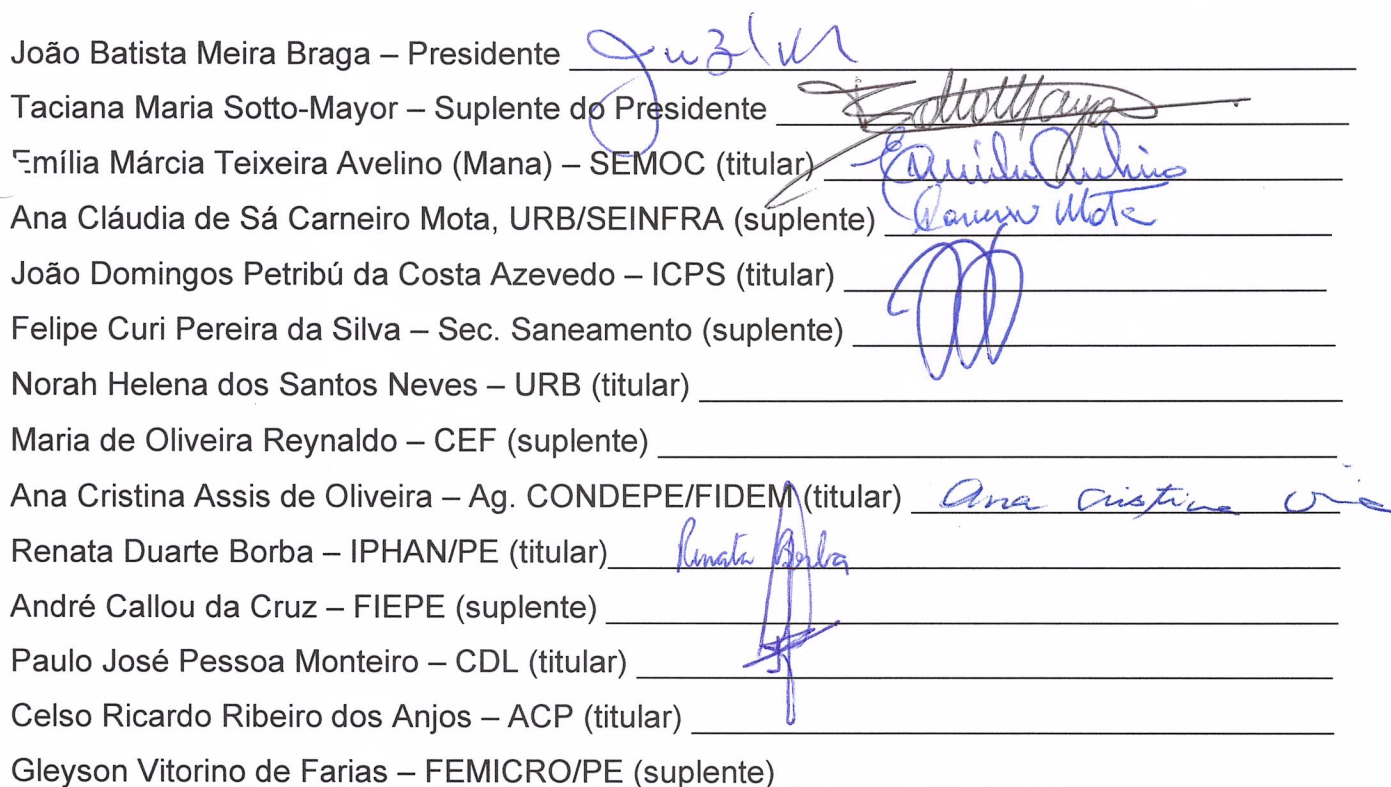 João Batista Meira Braga – Presidente
Taciana Maria Sotto-Mayor – Suplente do Presidente SottoMayor
Emília Márcia Teixeira Avelino (Mana) – SEMOC (titular) Emília Avelino
Ana Cláudia de Sá Carneiro Mota, URB/SEINFRA (suplente) Carneiro Mota
João Domingos Petribú da Costa Azevedo – ICPS (titular)
Felipe Curi Pereira da Silva – Sec. Saneamento (suplente)
Norah Helena dos Santos Neves – URB (titular)
Maria de Oliveira Reynaldo – CEF (suplente)
Ana Cristina Assis de Oliveira – Ag. CONDEPE/FIDEM (titular) Ana Cristina
Renata Duarte Borba – IPHAN/PE (titular) Renata Borba
André Callou da Cruz – FIEPE (suplente)
Paulo José Pessoa Monteiro – CDL (titular)
Celso Ricardo Ribeiro dos Anjos – ACP (titular)
Gleyson Vitorino de Farias – FEMICRO/PE (suplente)